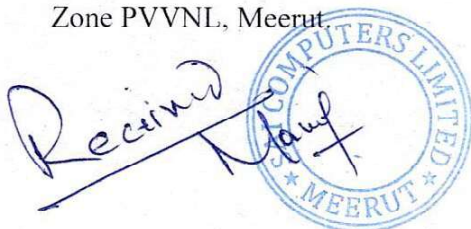 Zone PVVNL, Meerut
Received
COMPUTERS LIMITED
★ MEERUT ★